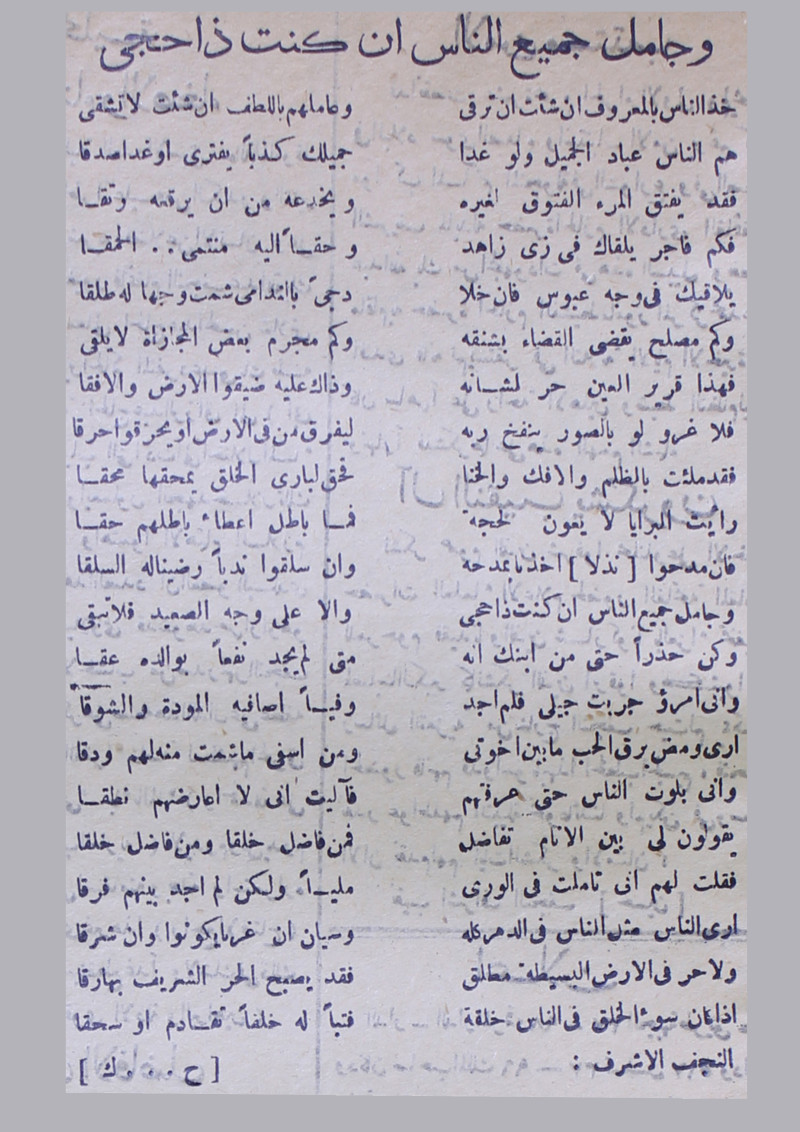 وجامل جميع الناس ان كنت ذا حجى
خذ الناس بالمعروف ان شئت ان ترقى وعاملهم باللطف ان شئت لا تشقى
هم الناس عباد الجميل ولو غدا جميلك كذباً يفترى او غدا صدقا
فقد يفتق المرء الفتوق لغيره ويخدعه من ان يرقعه وتقا
فكم فاجر يلقاك فى زى زاهد وحقاً اليه منتمى . . الحمقا
يلاقيك فى وجه عبوس فان خلا دجىً بالندامى شمت وجها له طلقا
وكم مصلح يقضى القضاء بشنقه وكم مجرم بعض المجازاة لا يلقى
فهذا قرير العين حر لشانه وذاك عليه ضيقوا الارض والافقا
فلا غرو لو بالصور ينفخ ربه ليغرق من فى الارض او يحرقوا حرقا
فقد ملئت بالظلم والافك والخنا فحق لبارى الخلق يمحقها محقا
رأيت البرايا لا يعون لحجة فما باطل اعطاء باطلهم حقا
فان مدحوا [ نذلا ] اخذنا بمدحه وان سلقوا ندباً رضينا له السلقا
وجامل جميع الناس ان كنت ذا حجى والا على وجه الصعيد فلا تبقى
وكن حذراً حتى من ابنك انه متى لم يجد نفعاً بوالده عقا
وانى امرؤ جربت جيلى فلم اجد وفياً اصافيه المودة والشوقا
ارى ومض برق الحب ما بين اخوتى ومن اسفى ما شمت منه لهم ودقا
وانى بلوت الناس حتى عرفتهم فآليت انى لا اعارضهم نطقا
يقولون لى بين الانام تفاضل فمن فاضل خلقا ومن فاضل خلقا
فقلت لهم انى تاملت فى الورى ملياً ولكن لم اجد بينهم فرقا
ارى الناس مثل الناس فى الدهر كله وسيان ان غربا يكونوا وان شرقا
ولا حر فى الارض البسيطة مطلق فقد يصبح الحر الشريف بها رقا
اذا كان سوء الخلق فى الناس خلقة فتباً له خلقاً تقادم او سحقا
النجف الاشرف : [ ح . . . ك ]